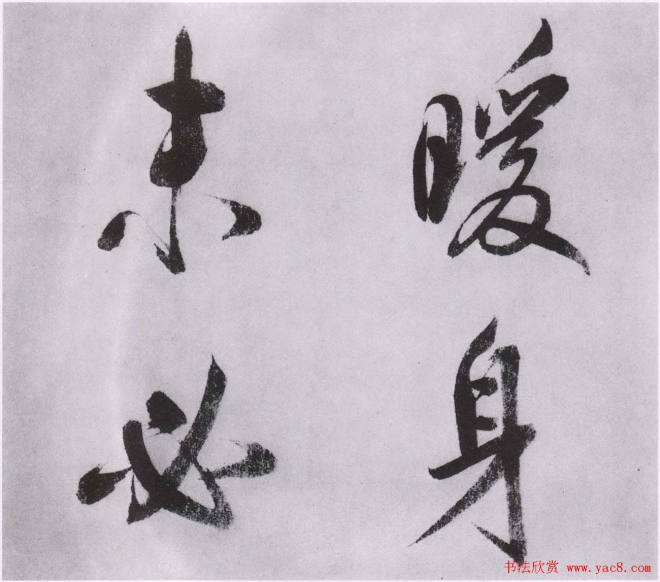 暖身
未必
书法欣赏 www.yac8.com